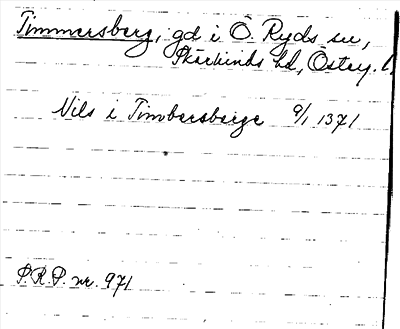 Timmersberg, gd i Ö. Ryds sn,
Skärkinds hd, Östg. l.
Nils i Timbersberge 9/1 1371
P.R.P. nr. 971